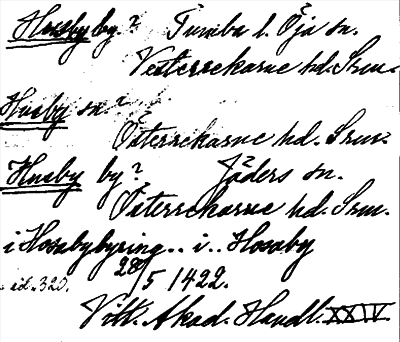 Hosby by? Tumbo l. Öja sn.
Vesterrekarne hd. Srm.
Husby sn.?
Österrekarne hd. Srm.
Husby by? Jäders sn.
Österrekarne hd. Srm.
i Hosabybyring.. i.. Hosaby
sid. 320. 28/5 1422.
Vitt. Akad. Handl. XXIV.